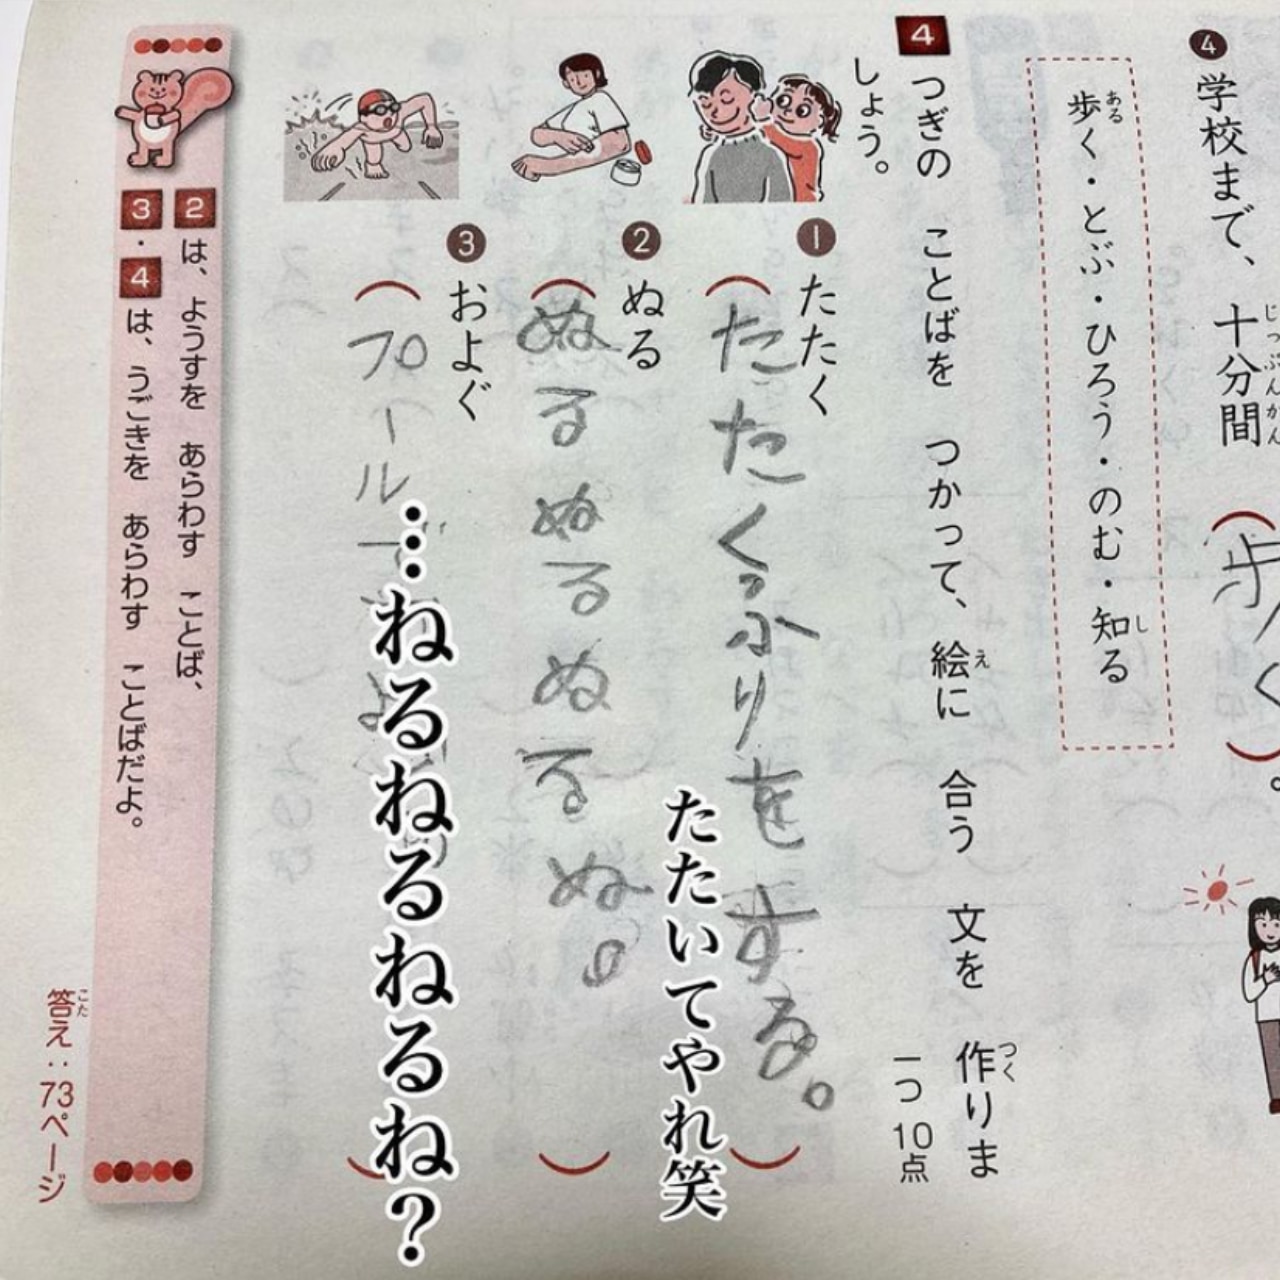 ❹ 学校まで、十分間（歩く）。
じっぷんかん
歩く・とぶ・ひろう・のむ・知る
ある
し
4 つぎの ことばを つかって、絵に 合う 文を 作りま
え
つく
しょう。
一つ10点
❶ たたく
（たたくっふりをする。）
たたいてやれ笑
❷ ぬる
（ぬるぬるぬるぬ。）
❸ およぐ
（プール
…ねるねるねるねるね？
2は、ようすを あらわす ことば、
3・4は、うごきを あらわす ことばだよ。
答え：73ページ
こた